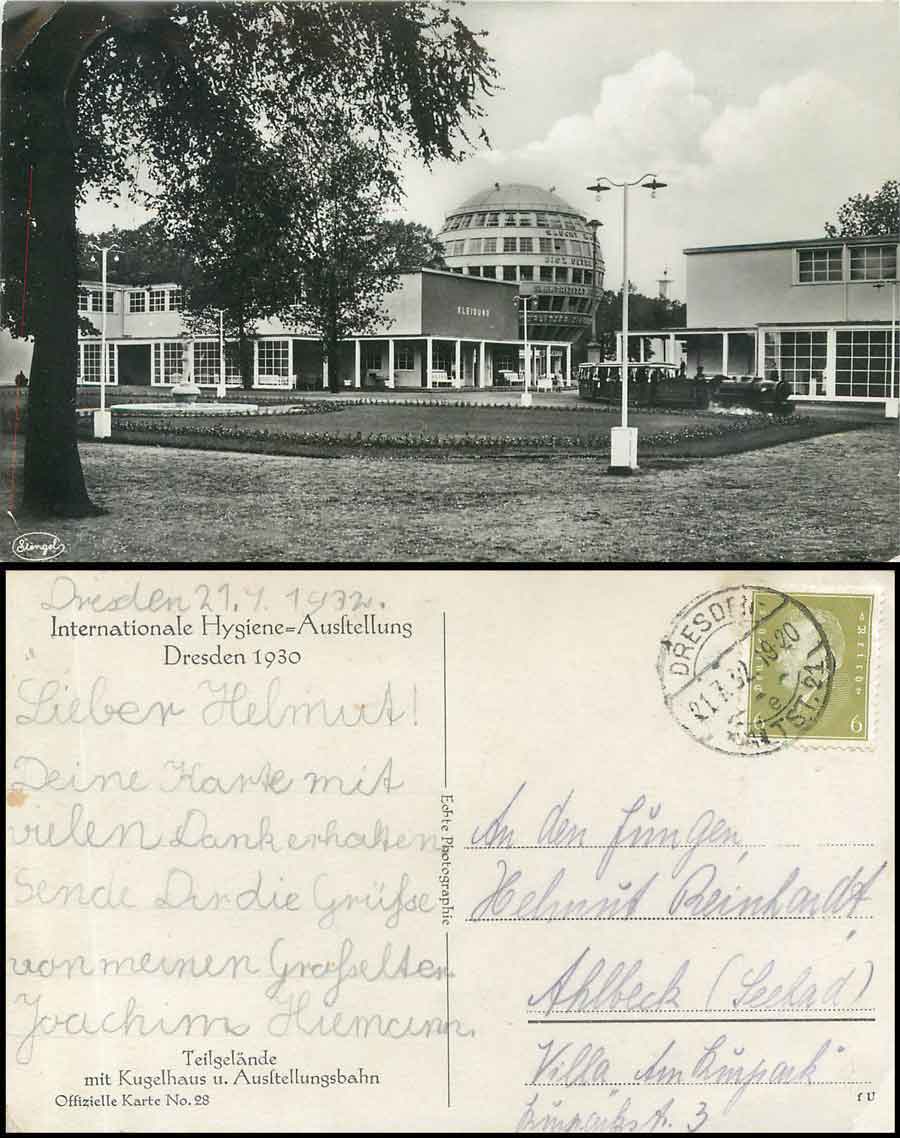 KLEIDUNG
Stengel
Dresden 21.7.1932.
Internationale Hygiene=Ausſtellung
Dresden 1930
Lieber Helmut!
Deine Karte mit
vielen Dank erhalten
Sende Dir die Grüße
von meinen Großeltern
Joachim Hiemann.
Teilgelände
mit Kugelhaus u. Ausſtellungsbahn
Offizielle Karte No. 28
Echte Photographie
DRESDEN-
ALTST. 21.
21.7.32.19-20
e
Deutsches Reich
6 6
An den Jungen,
Helmut Reinhardt
Ahlbeck (Seebad)
Villa „Am Kurpark"
Kurparkstr. 3